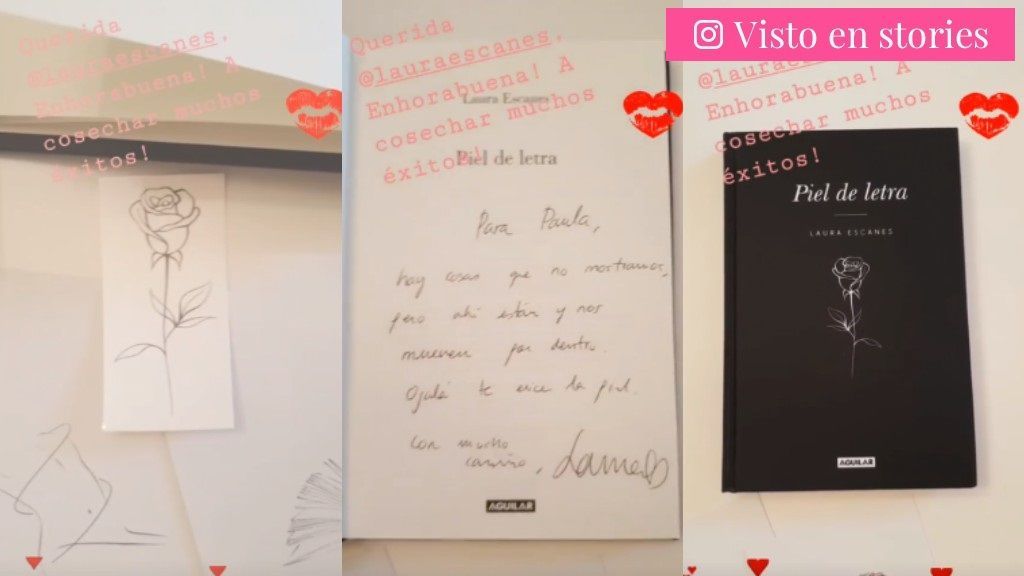 Visto en stories
Querida
@lauraescanes,
Enhorabuena! A
cosechar muchos
éxitos!
Querida
@lauraescanes,
Enhorabuena! A
cosechar muchos
éxitos!
Laura Escanes
Piel de letra
Para Paula,
hay cosas que no mostramos,
pero ahí están y nos
mueven por dentro.
Ojalá te erice la piel.
Con mucho
cariño,
AGUILAR
@laura
Enhorabuena! A
cosechar muchos
éxitos!
Piel de letra
LAURA ESCANES
AGUILAR